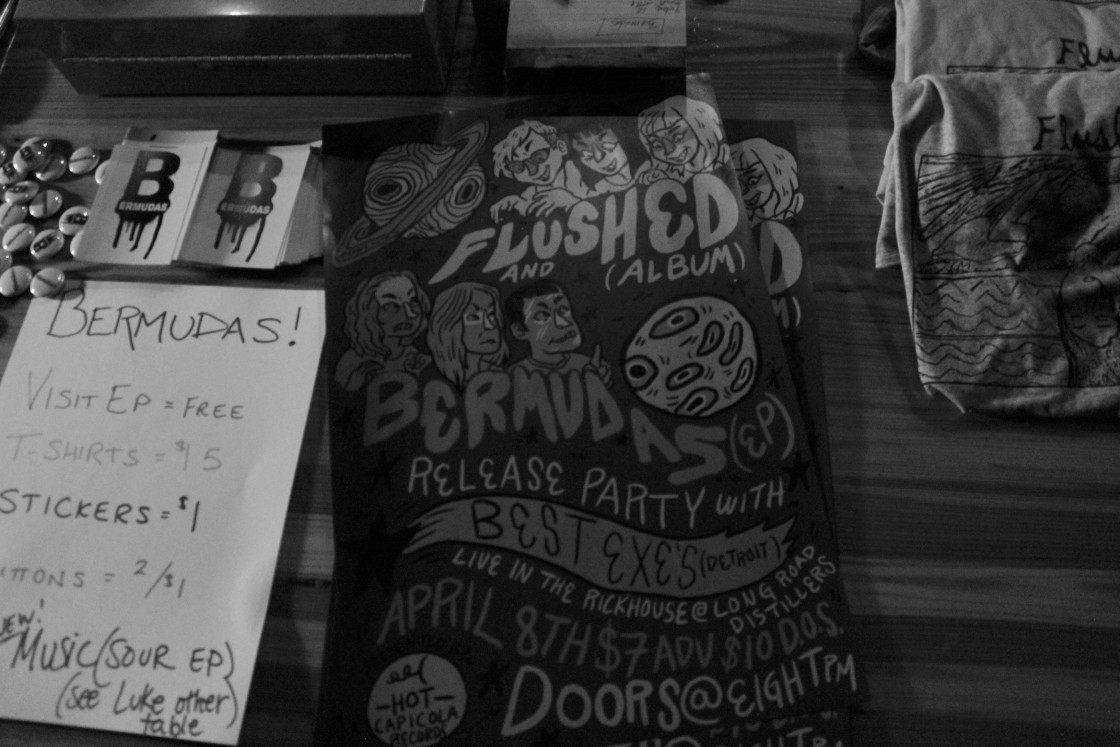 B
ERMUDAS
B
ERMUDAS
BERMUDAS!
VISIT EP = FREE
T-SHIRTS = $15
STICKERS = $1
TTONS = 2/$1
NEW!
MUSIC (SOUR EP)
(See Luke other
table
FLUSHED
AND (ALBUM)
BERMUDAS (EP)
RELEASE PARTY WITH
BEST EXE'S (DETROIT)
LIVE IN THE RICKHOUSE @ LONG ROAD
DISTILLERS
APRIL 8TH $7 ADV $10 D.O.S.
DOORS @ EIGHT PM
HOT
CAPICOLA
RECORDS
Flu
Flus